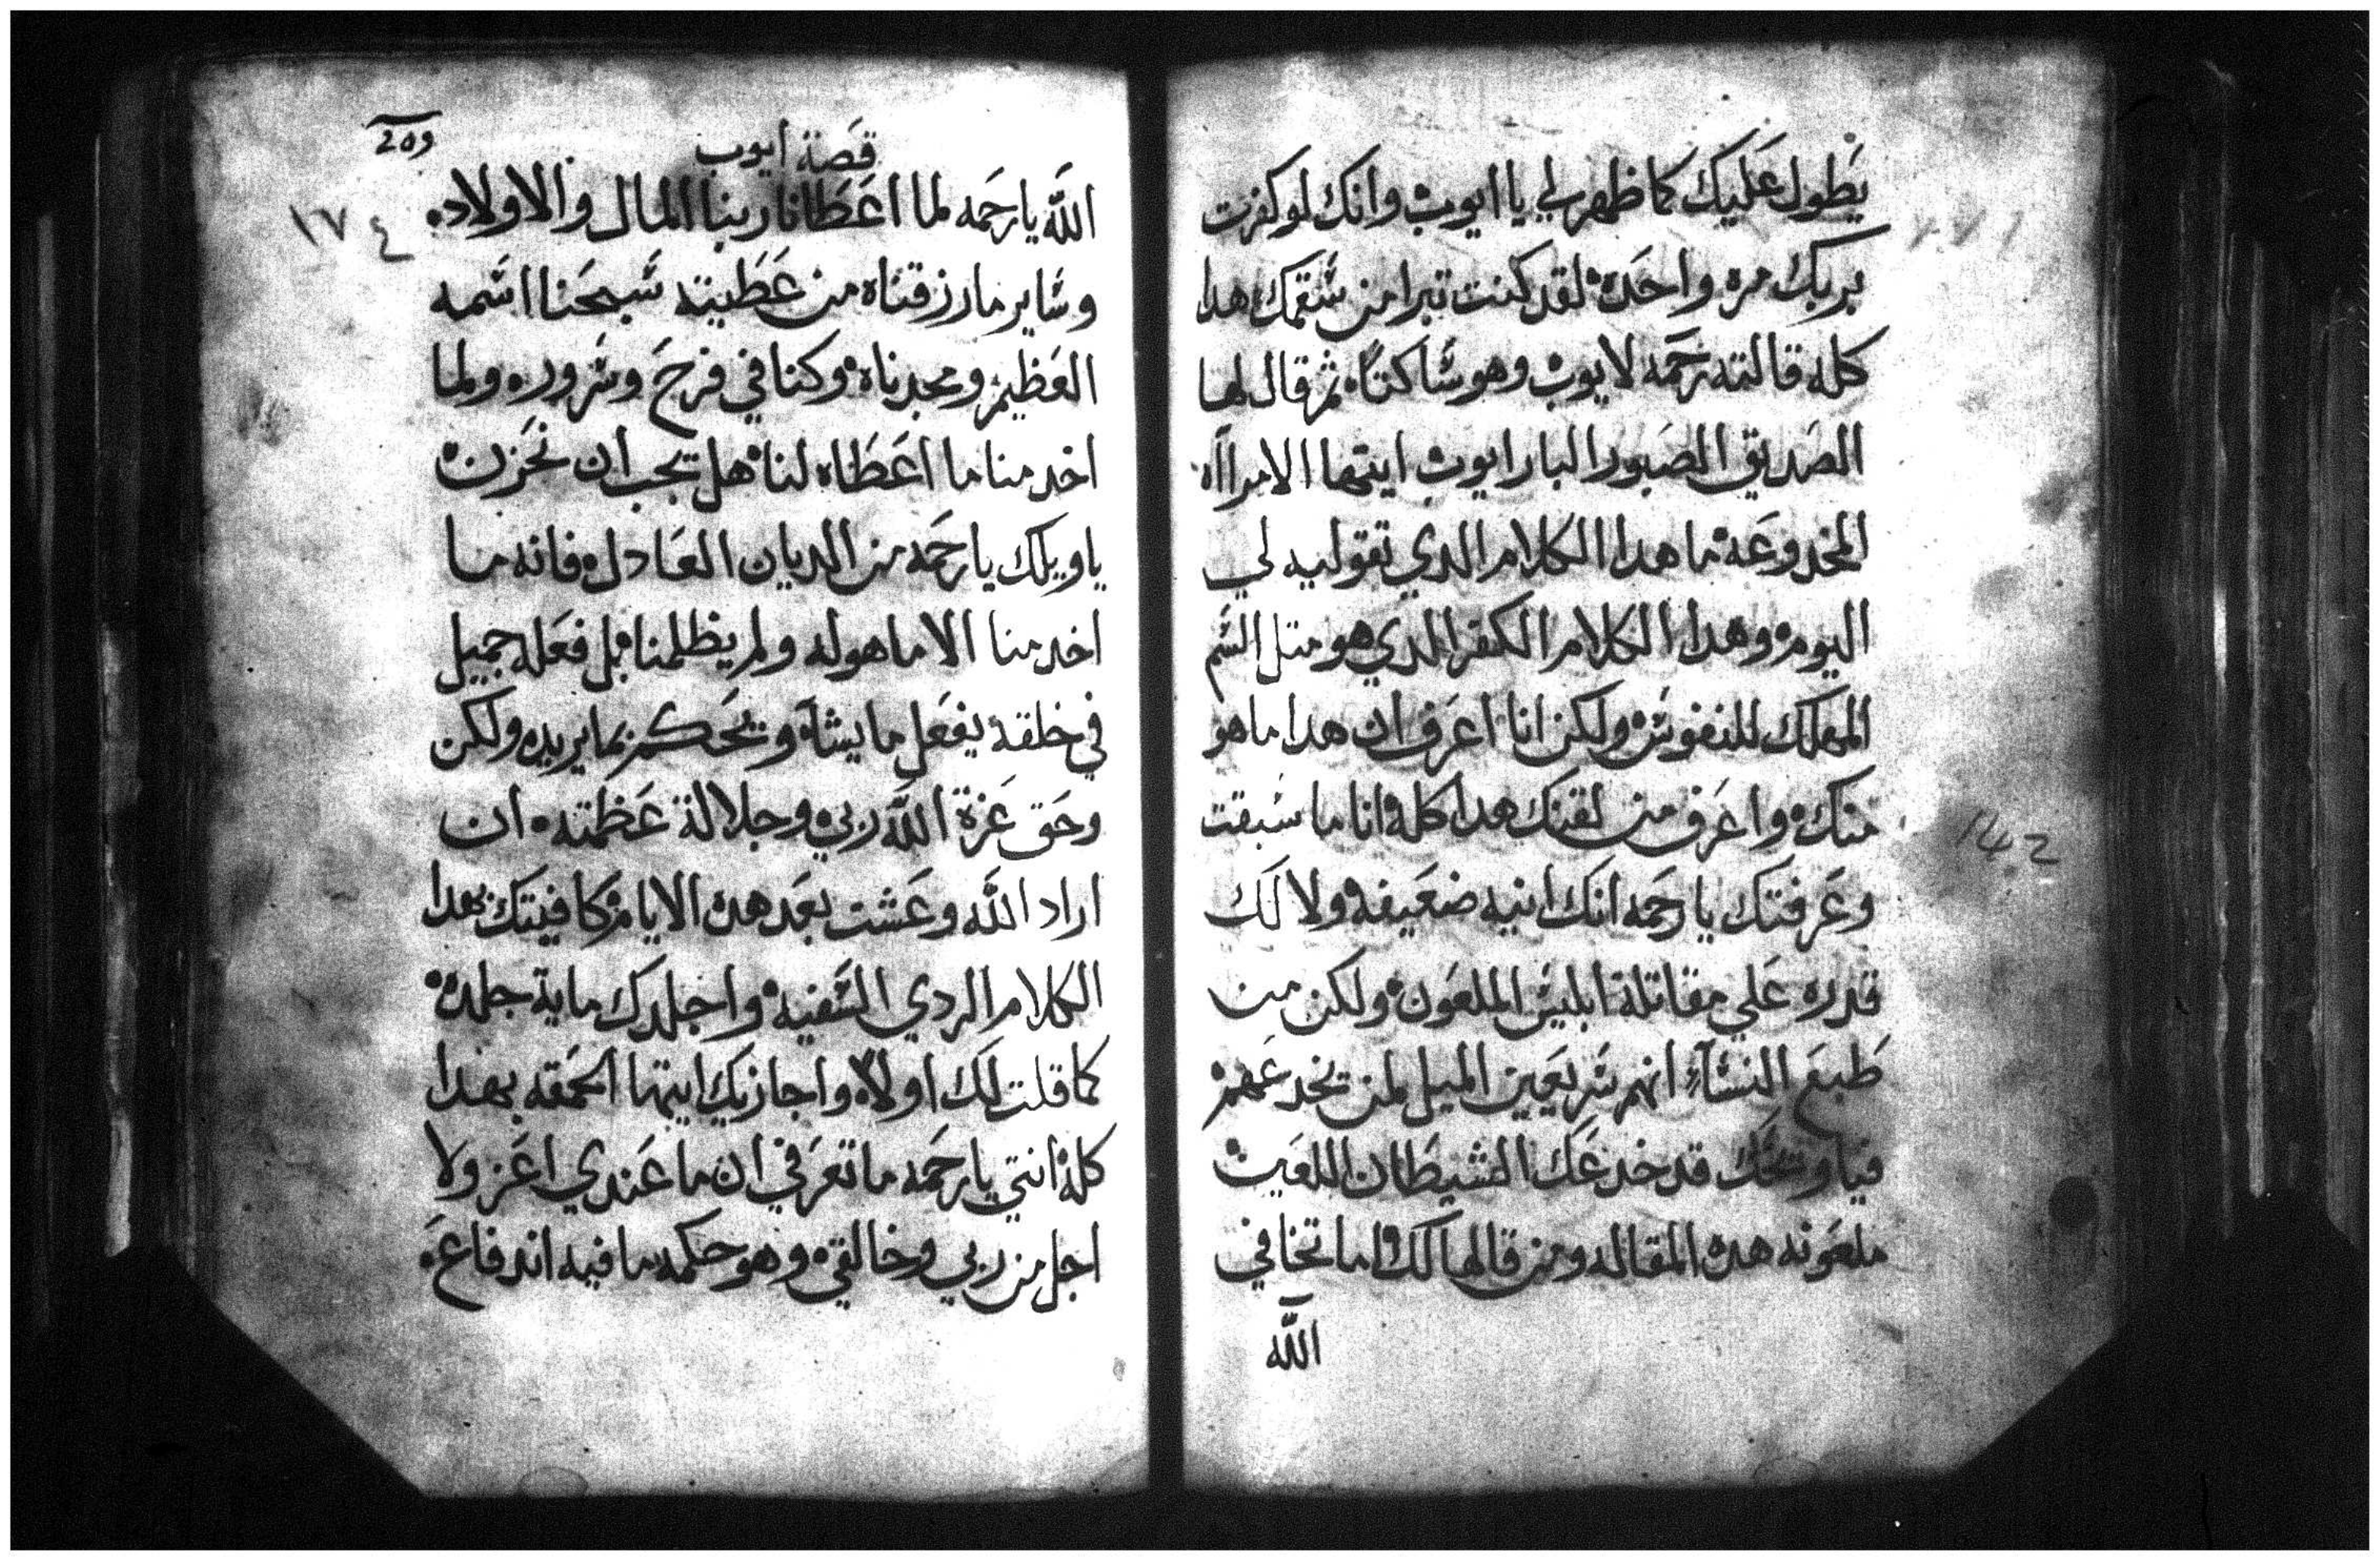 يطول عليك كما ظهر لي يا ايوب وانك لو كفرت
بربك مره واحده لقد كنت تبرا من سقمك هدا
كله قالته رحمه لايوب وهو ساكتاً ثم قال لها
الصديق الصبور البار ايوب ايتها الامراآه
المخدوعه ما هدا الكلام الدي تقوليه لي
اليوم وهدا الكلام الكفر الدي هو متل السم
المهلك للنفوس ولكن انا اعرف ان هدا ما هو
منك واعرف من لقنك هدا كله انا ما سبقت
وعرفتك يا رحمه انك انيه ضعيفه ولا لك
قدره علي مقاتلة ابليس الملعون ولكن من
طبع النسآء انهم سريعين الميل لمن يخدعهم
فيا ويحك قد خدعك الشيطان اللعين
ملعونه هده المقاله ومن قالها لك اما تخافي
الله
209
قصة ايوب
١٧٤
الله يا رحمه لما اعطانا ربنا المال والاولاد
وساير ما رزقناه من عطيته سبحنا اسمه
العظيم ومجدناه وكنا في فرح وسرور ولما
اخد منا ما اعطاه لنا هل يجب ان نحزن
يا ويلك يا رحمه من الديان العادل فانه ما
اخد منا الا ما هو له ولم يظلمنا بل فعله جميل
في خلقه يفعل ما يشآ ويحكم بما يريد ولكن
وحق عزة الله ربي وجلالة عظمته ان
اراد الله وعشت بعد هده الايام كافيتك بهدا
الكلام الردي السفيه واجلدك ماية جلده
كما قلت لك اولاً واجازيك ايتها الحمقه بهدا
كله انتي يا رحمه ما تعرفي ان ما عندي اعز ولا
اجل من ربي وخالقي وهو حكمه ما فيه اندفاع